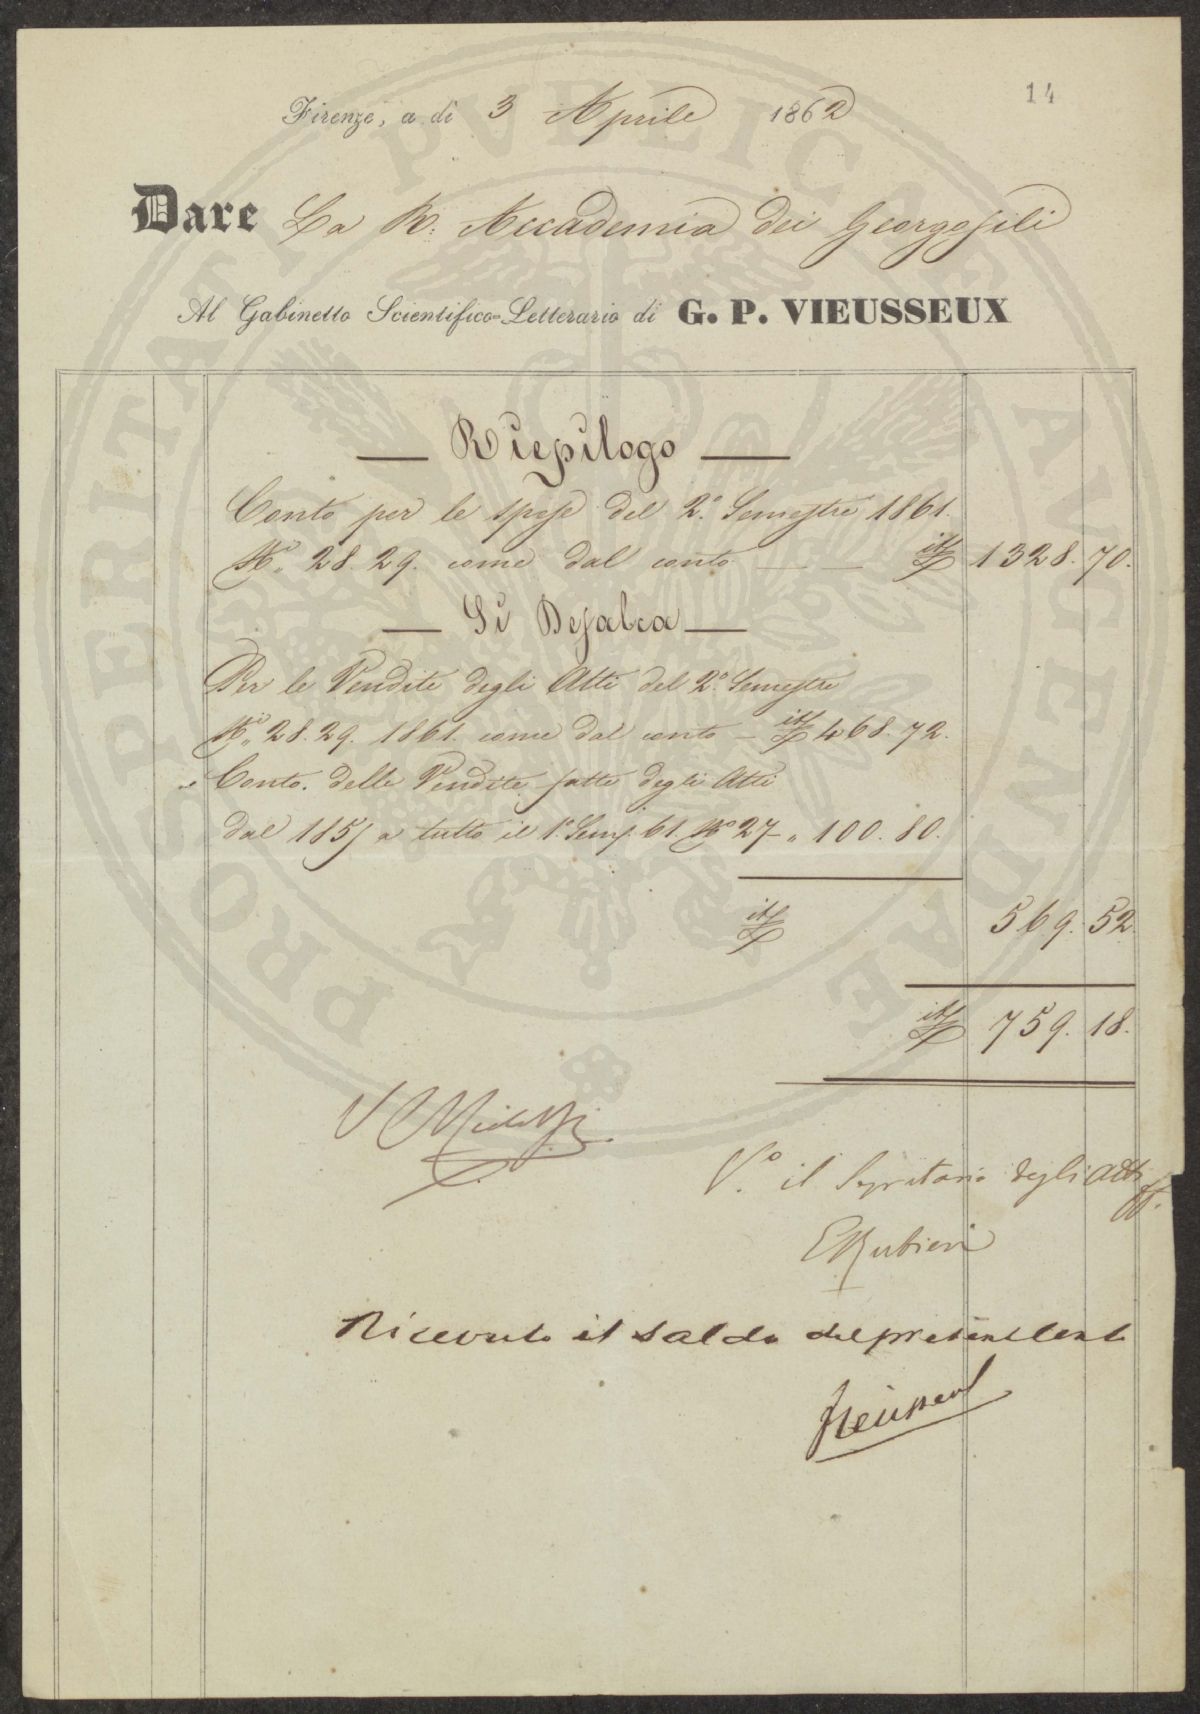 14
Firenze, a dì 3 Aprile 1862
Dare La R. Accademia dei Georgofili
Al Gabinetto Scientifico-Letterario di G. P. VIEUSSEUX
Riepilogo
Conto per le spese del 2.° Semestre 1861.
N.i 28. 29. come dal conto it£ 1328. 70.
Si Defalca
Per le Vendite degli Atti del 2.° Semestre
N.i 28. 29. 1861. come dal conto - it£ 468. 72.
Conto. delle Vendite fatte degli Atti
dal 185 a tutto il 1.° Sem. 61. N.° 27 - „ 100. 80.
it£ 569. 52.
it£ 759. 18.
V.° il Segretario degli Atti
E Rubieri
Ricevuto il saldo del presente conto
Vieusseux
PROSPERITATI PVBLICAE AVGENDAE